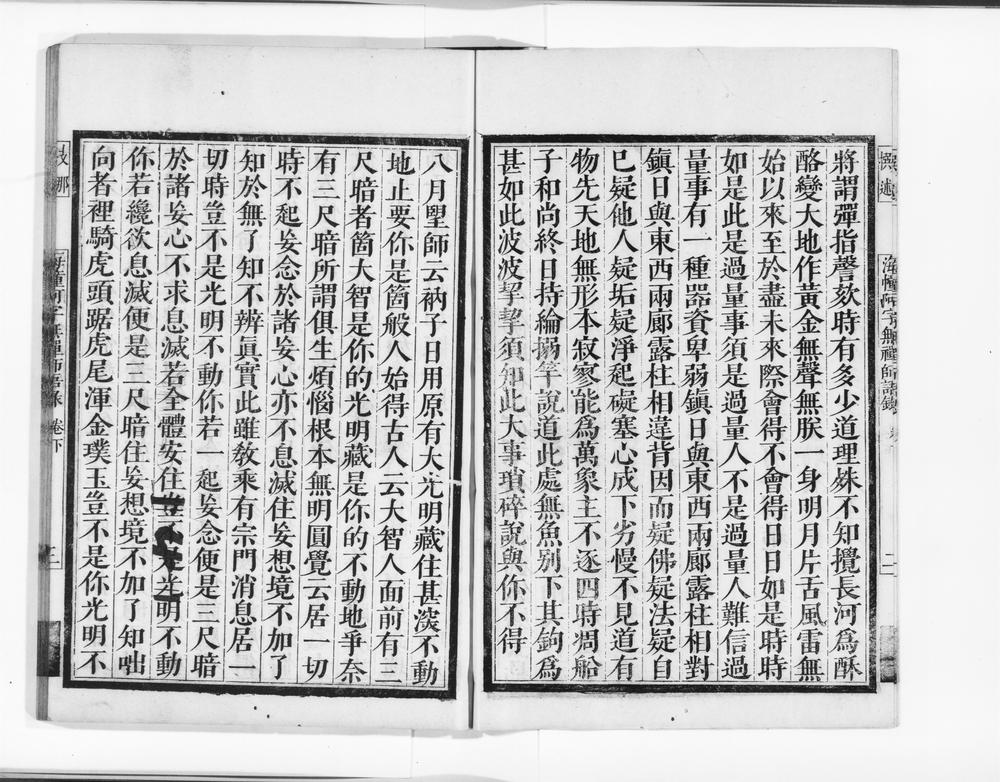 撰述
海幢阿字無禪師語錄
二
將謂彈指謦欬時有多少道理姝不知攪長河爲酥
酪變大地作黃金無聲無朕一身明月片舌風雷無
始以來至於盡未來際會得不會得日日如是時時
如是此是過量事須是過量人不是過量人難信過
量事有一種器資卑弱鎮日與東西兩廊露柱相對
鎮日與東西兩廊露柱相違背因而疑佛疑法疑自
巳疑他人疑垢疑淨起礙塞心成下劣慢不見道有
物先天地無形本寂寥能爲萬象主不逐四時凋船
子和尚終日持綸搦竿說道此處無魚別下其鉤爲
甚如此波波挈挈須知此大事瑣碎說與你不得
八月朢師云衲子日用原有大光明藏住甚湥不動
地止要你是箇般人始得古人云大智人面前有三
尺暗者箇大智是你的光明藏是你的不動地爭奈
有三尺暗所謂俱生煩惱根本無明圓覺云居一切
時不起妄念於諸妄心亦不息滅住妄想境不加了
知於無了知不辨眞實此雖敎乘有宗門消息居一
切時豈不是光明不動你若一起妄念便是三尺暗
於諸妄心不求息滅若全體安住豈不是光明不動
你若纔欲息滅便是三尺暗住妄想境不加了知咄
向者裡騎虎頭踞虎尾渾金璞玉豈不是你光明不
支那
海幢阿字無禪師語錄 卷下
三